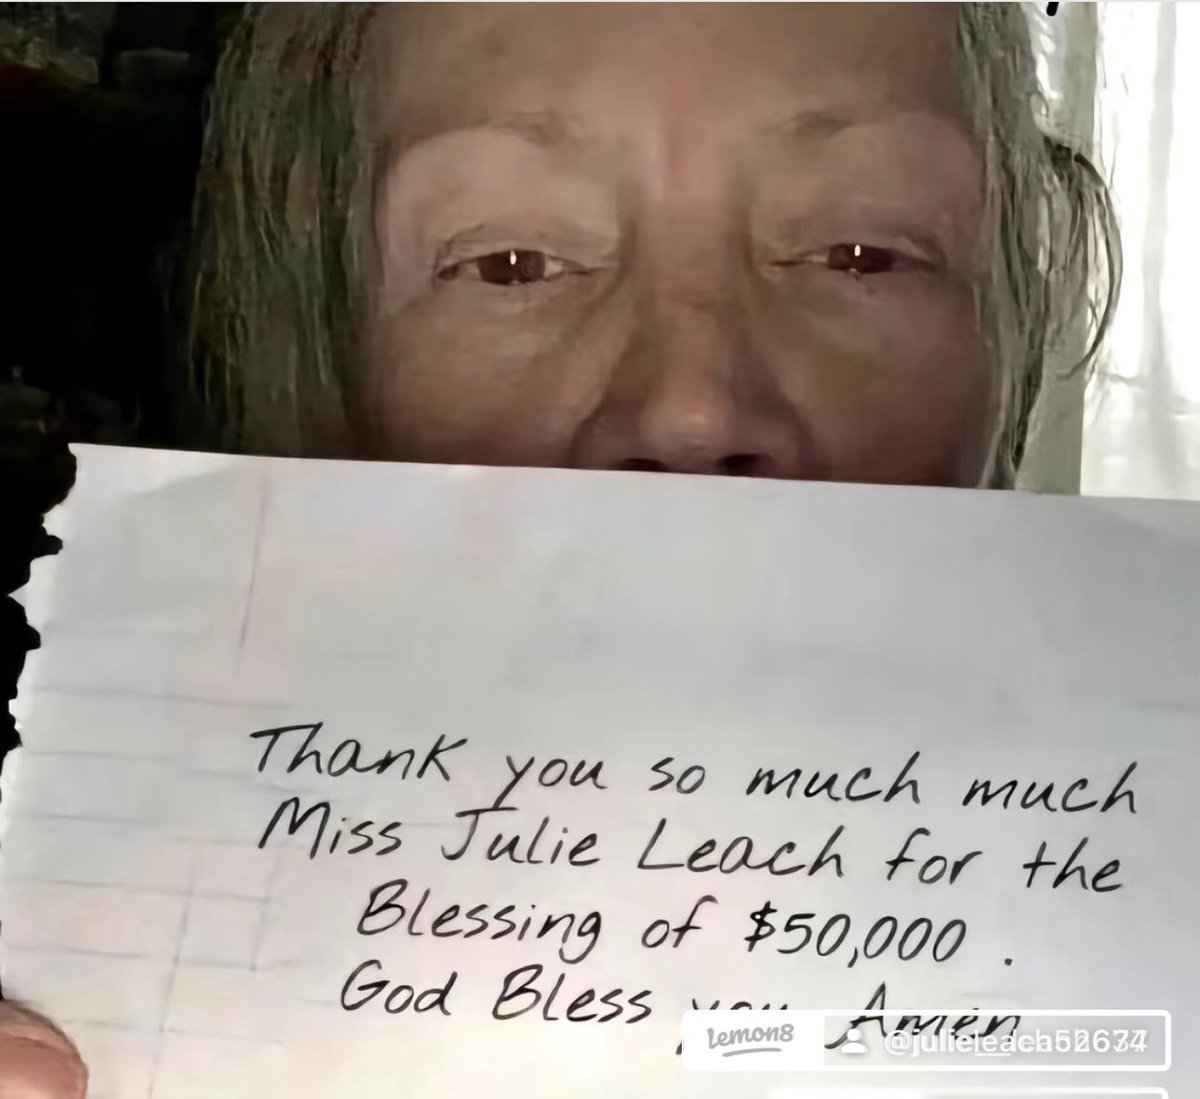 Thank you so much much
Miss Julie Leach for the
Blessing of $50,000 .
God Bless you Amen
lemon8